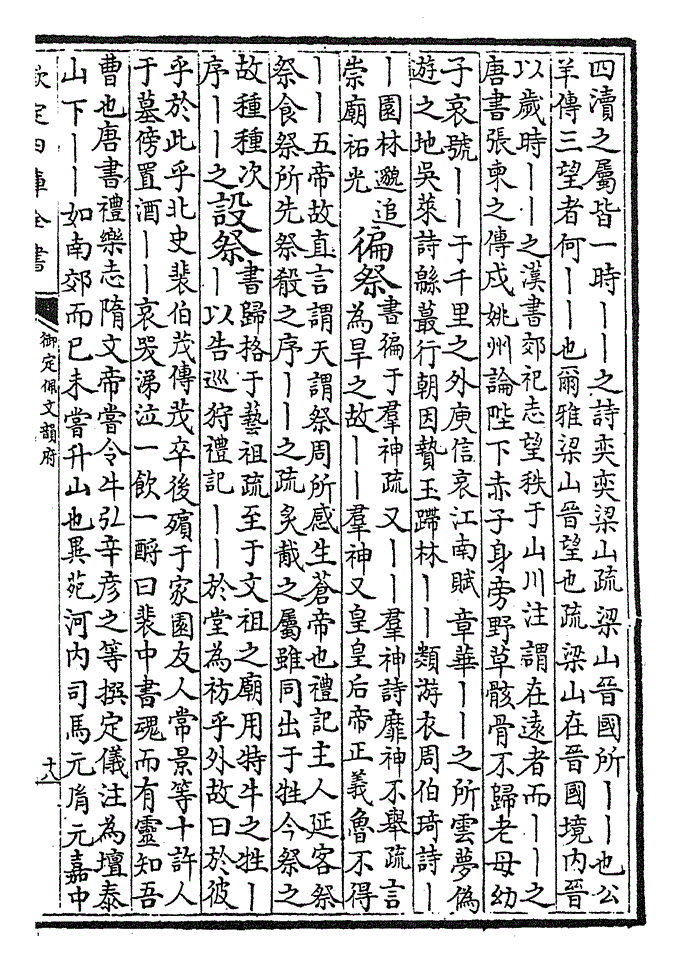 四瀆之屬皆一時丨丨之詩奕奕梁山疏梁山晉國所丨丨也公
羊傳三望者何丨丨也爾雅梁山晉望也疏梁山在晉國境內晉
以歲時丨丨之漢書郊祀志望秩于山川注謂在遠者而丨丨之
唐書張柬之傳戍姚州論陛下赤子身旁野草骸骨不歸老母幼
子哀號丨丨于千里之外庾信哀江南賦章華丨丨之所雲夢偽
遊之地吳萊詩緜蕞行朝因贄王蹛林丨丨類游衣周伯琦詩丨
丨園林邈追
崇廟祏光
徧祭
書徧于羣神疏又丨丨羣神詩靡神不舉疏言
為旱之故丨丨羣神又皇皇后帝正義魯不得
丨丨五帝故直言謂天謂祭周所感生蒼帝也禮記主人延客祭
祭食祭所先祭殽之序丨丨之疏炙胾之屬雖同出于牲今祭之
故種種次
序丨丨之
設祭
書歸格于藝祖疏至于文祖之廟用特牛之牲丨
丨以告巡狩禮記丨丨於堂為祊乎外故曰於彼
乎於此乎北史裴伯茂傳茂卒後殯于家園友人常景等十許人
于墓傍置酒丨丨哀哭涕泣一飲一酹曰裴中書魂而有靈知吾
曹也唐書禮樂志隋文帝嘗令牛弘辛彥之等撰定儀注為壇泰
山下丨丨如南郊而已未嘗升山也異苑河內司馬元胤元嘉中
欽定四庫全書
御定佩文韻府
十八